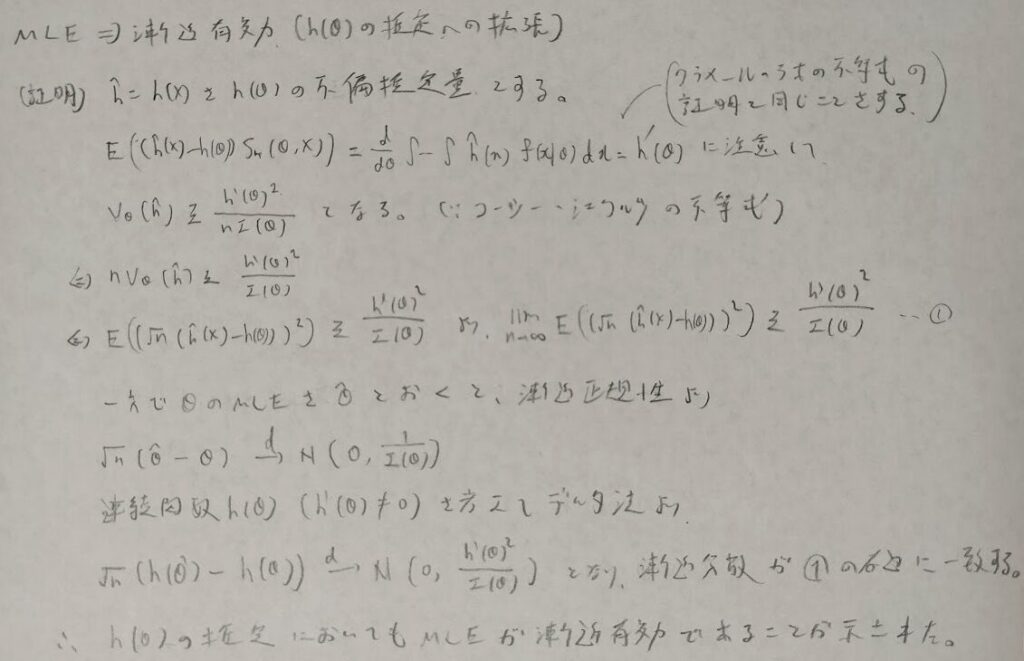 MLE ⇒ 漸近有効 (h(θ)の推定への拡張)
(証明) ĥ = h(x) を h(θ) の不偏推定量とする。
(クラメール・ラオの不等式の
証明と同じことをする。)
E((ĥ(x)-h(θ)) Sn(θ,x)) = d/dθ ∫…∫ ĥ(x) f(x|θ) dx = h'(θ) に注意して
Vθ(ĥ) ≧ h'(θ)²/nI(θ) となる。(∵ コーシー・シュワルツの不等式)
⇔ nVθ(ĥ) ≧ h'(θ)²/I(θ)
⇔ E((√n (ĥ(x)-h(θ)))²) ≧ h'(θ)²/I(θ) より、lim n→∞ E((√n (ĥ(x)-h(θ)))²) ≧ h'(θ)²/I(θ) … ①
一方で θ の MLE を θ̂ とおくと、漸近正規性より
√n (θ̂ - θ) →d N (0, 1/I(θ))
連続関数 h(θ) (h'(θ) ≠ 0) を考えてデルタ法より
√n (h(θ̂) - h(θ)) →d N (0, h'(θ)²/I(θ)) となり、漸近分散が①の右辺に一致する。
∴ h(θ) の推定においても MLE が漸近有効であることが示された。